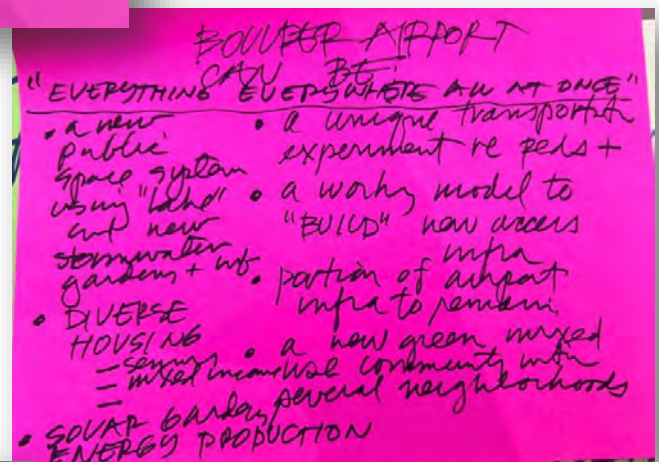 BOULDER AIRPORT
CAN BE:
"EVERYTHING EVERYWHERE ALL AT ONCE"
• a new
public
space system
using "lake"
and new
stormwater
gardens +
• DIVERSE
HOUSING
– seniors
– mixed income
–
• SOLAR Garden,
ENERGY PRODUCTION
• a unique transport
experiment re peds +
• a working model to
"BUILD" new access
infra
• portion of airport
infra to remain,
• a new green mixed
use community with
several neighborhoods